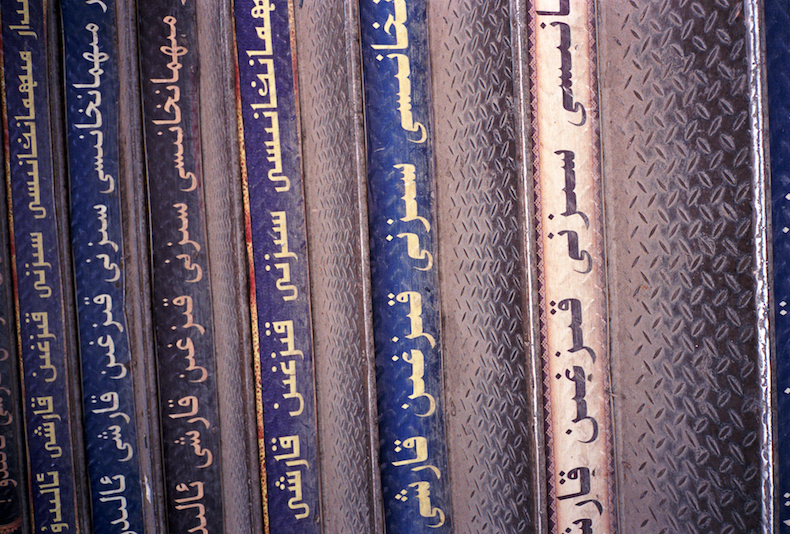 مىھمانخانىسى سىزنى قىزغىن قارشى ئالىدۇ
مىھمانخانىسى سىزنى قىزغىن قارشى ئالىدۇ
مىھمانخانىسى سىزنى قىزغىن قارشى ئالىد
ھمانخانىسى سىزنى قىزغىن قارشى
نخانىسى سىزنى قىزغىن قارشى
انىسى سىزنى قىزغىن قارش